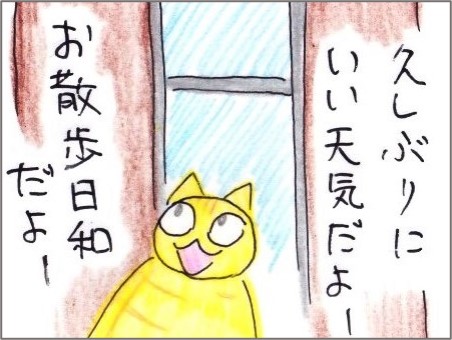 久しぶりに
いい天気だよー
お散歩日和
だよー